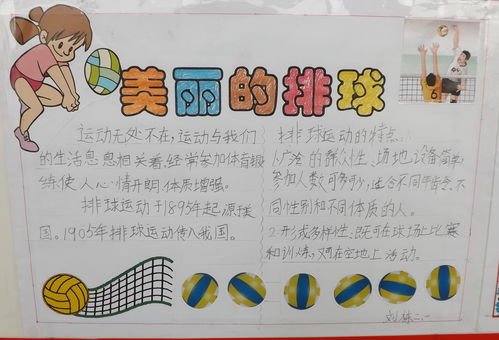 美丽的排球
运动无处不在，运动与我们
的生活息息相关着，经常参加体育锻
练使人心情开朗，体质增强。
排球运动于1895年起源美
国。1905年排球运动传入我国。
排球运动的特点：
1.广泛的群众性、场地、设备简单，
参加人数可多可少，适合不同年龄、不
同性别和不同体质的人。
2.形式多样性、既可在球场上比赛
和训练，又可在空地上活动。
刘栋二.一